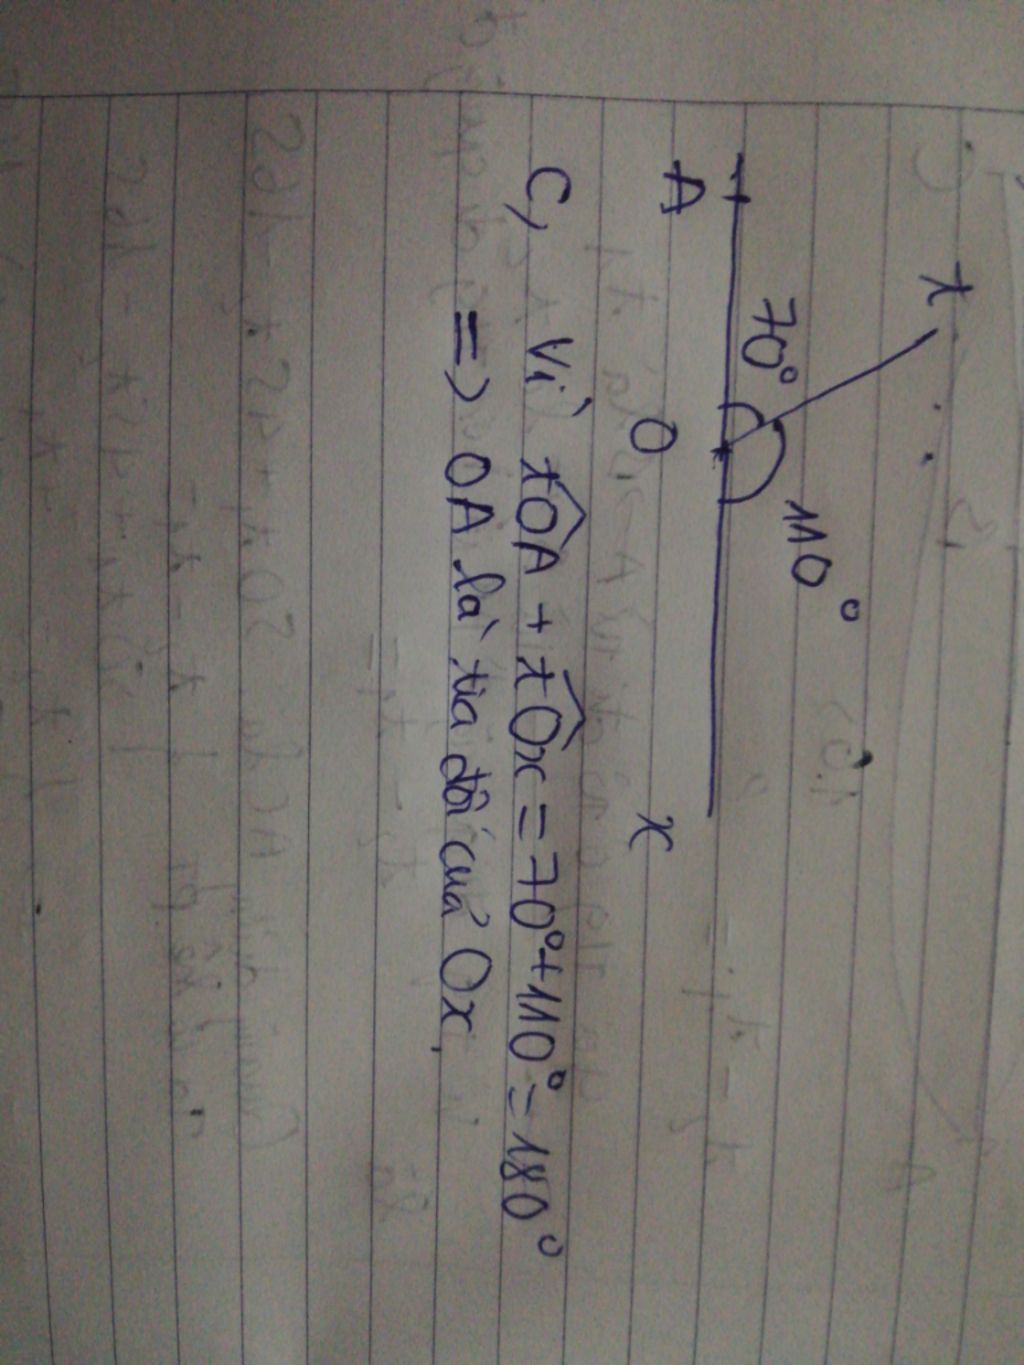 t
70°
110°
A
O
x
C, Vì tOA + tOx = 70° + 110° = 180°
=> OA là tia đối của Ox.